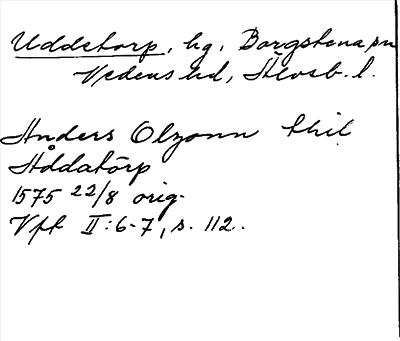 Uddetorp, hg, Borgstena sn
Vedens hd, Älvsb. l.
Anders Olzonn thil
Åddatörp
1575 22/8 orig.
Vft II:6-7, s. 112.